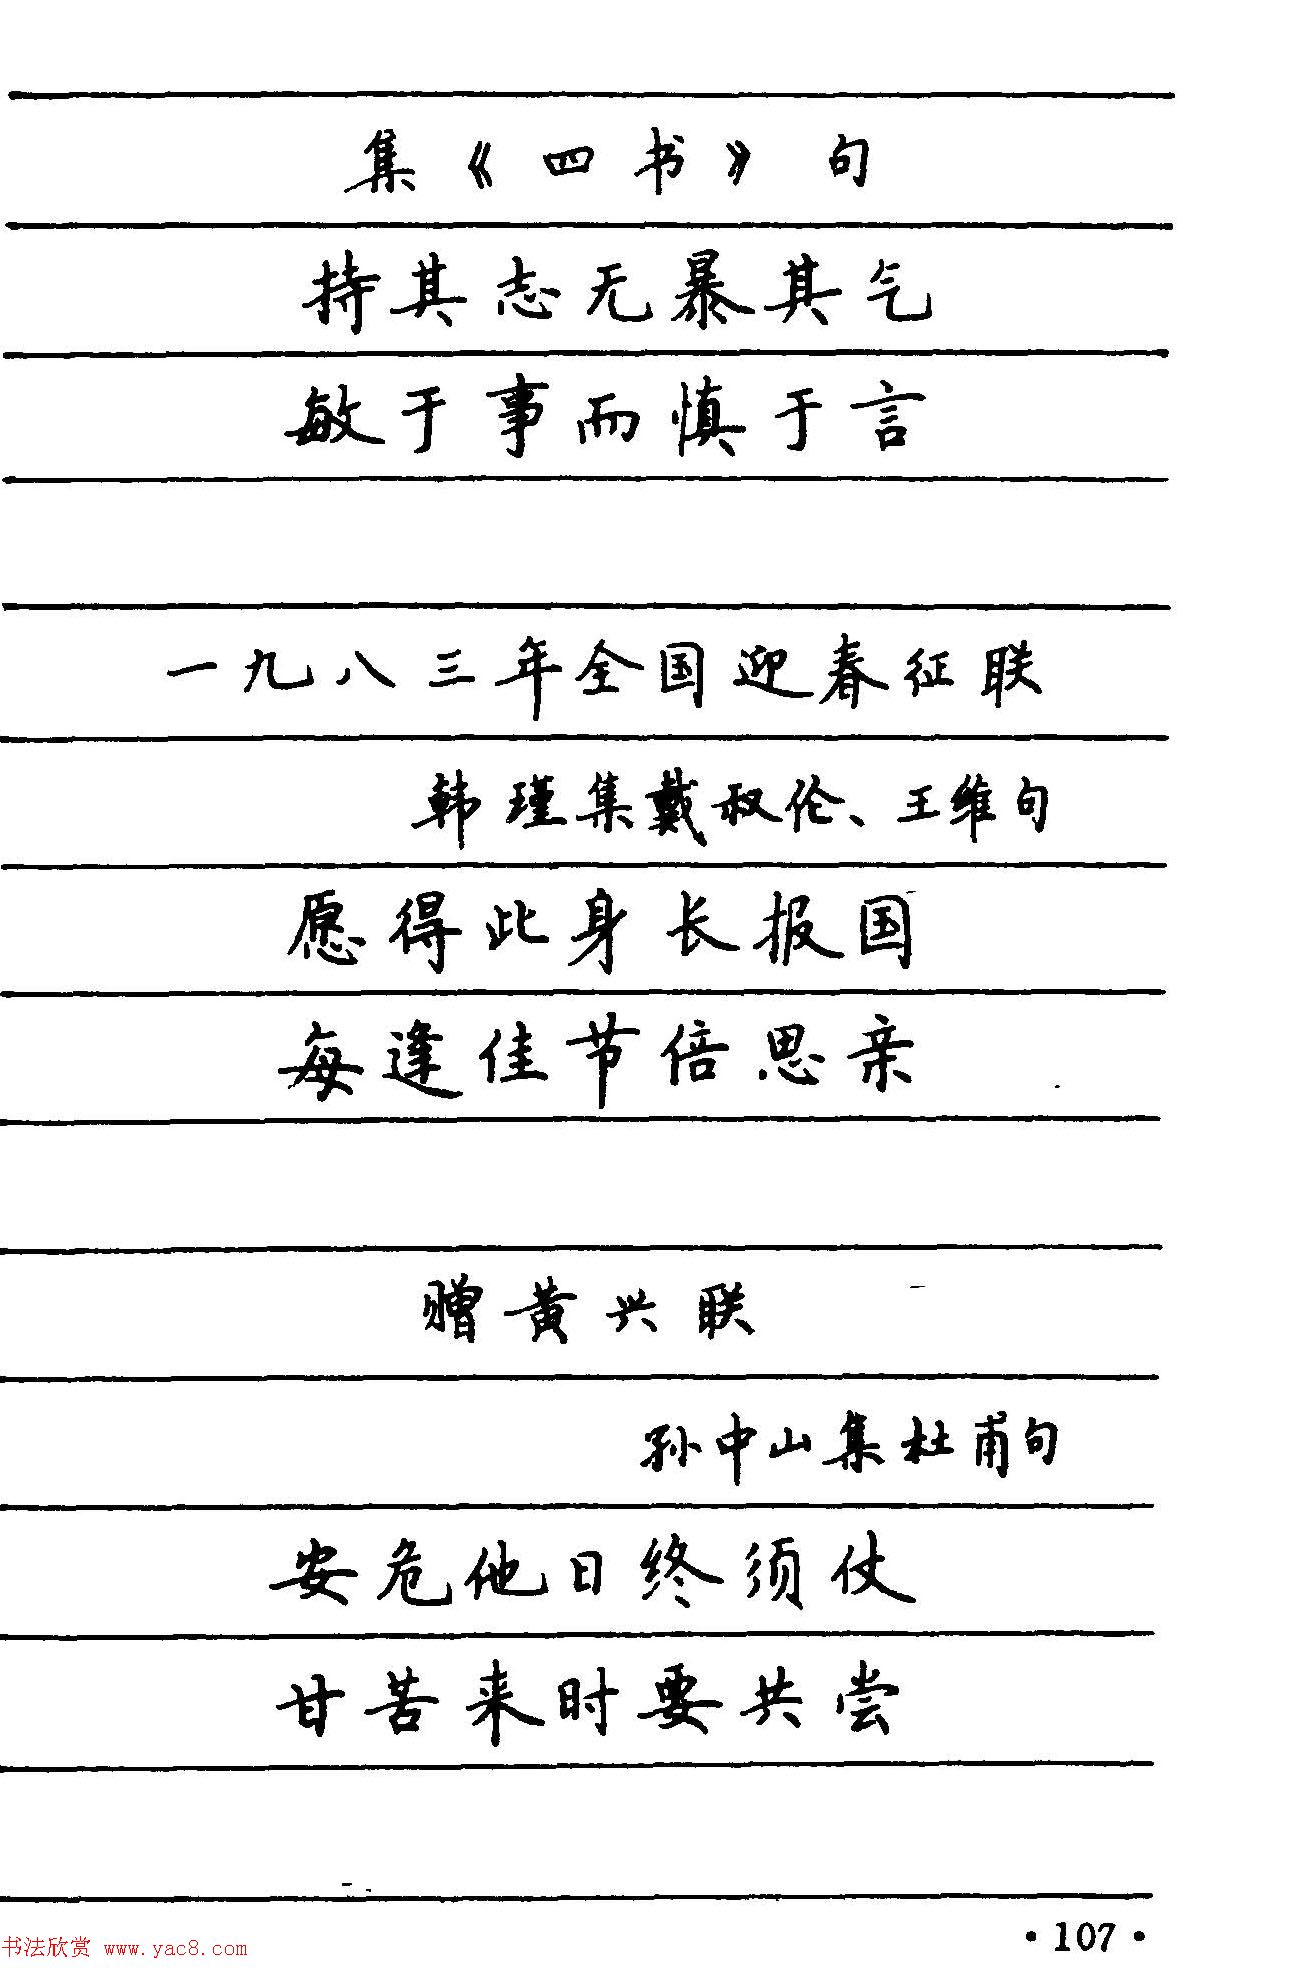 集《四书》句
持其志无暴其气
敏于事而慎于言
一九八三年全国迎春征联
韩瑾集戴叔伦、王维句
愿得此身长报国
每逢佳节倍思亲
赠黄兴联
孙中山集杜甫句
安危他日终须仗
甘苦来时要共尝
·107·
书法欣赏 www.yac8.com